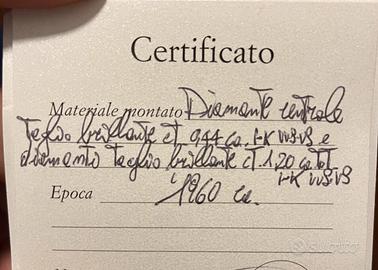 Certificato
Materiale montato Diamante centrale
Taglio brillante ct 0,44 ca. I-K VVS-VS e
diamanti taglio brillante ct 1,20 ca tot
I-K VVS-VS
Epoca 1960 ca.
subito